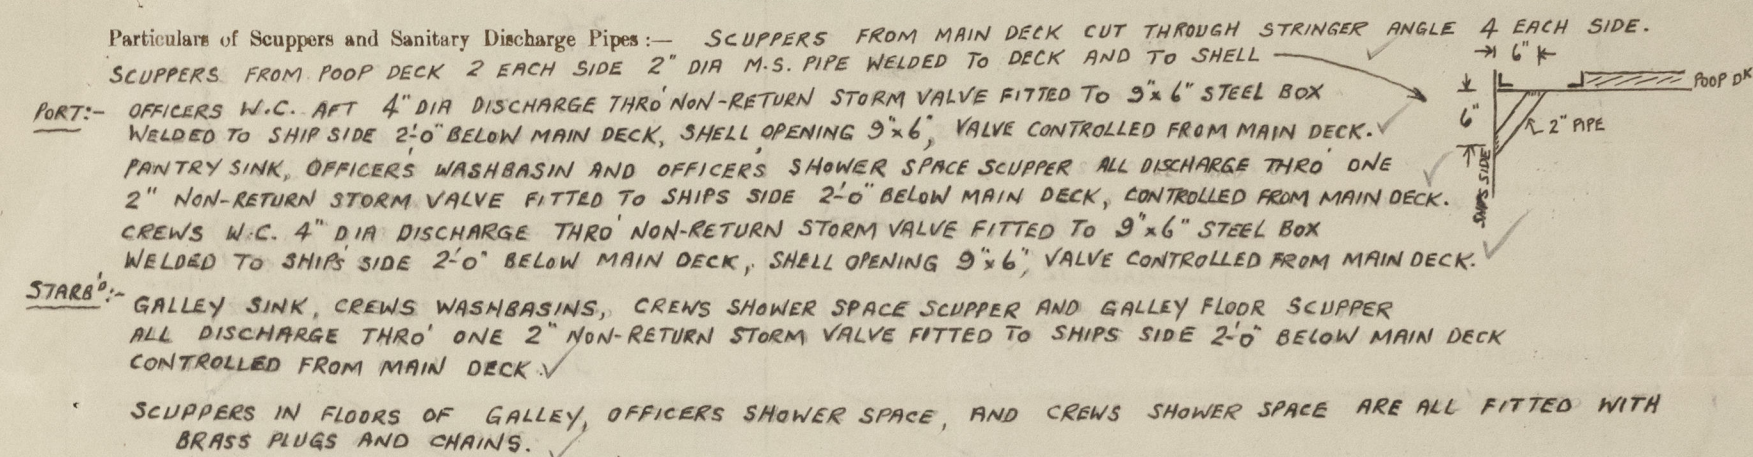 Particulars of Scuppers and Sanitary Discharge Pipes :— SCUPPERS FROM MAIN DECK CUT THROUGH STRINGER ANGLE 4 EACH SIDE.
SCUPPERS FROM POOP DECK 2 EACH SIDE 2" DIA M.S. PIPE WELDED TO DECK AND TO SHELL
6"
POOP DK
6"
2" PIPE
SHIPS SIDE
PORT:- OFFICERS W.C. AFT 4" DIA DISCHARGE THRO' NON-RETURN STORM VALVE FITTED TO 9"x6" STEEL BOX
WELDED TO SHIP SIDE 2'-0" BELOW MAIN DECK, SHELL OPENING 9"x6", VALVE CONTROLLED FROM MAIN DECK.
PANTRY SINK, OFFICER'S WASHBASIN AND OFFICER'S SHOWER SPACE SCUPPER ALL DISCHARGE THRO' ONE
2" NON-RETURN STORM VALVE FITTED TO SHIPS SIDE 2'-0" BELOW MAIN DECK, CONTROLLED FROM MAIN DECK.
CREWS W.C. 4" DIA DISCHARGE THRO' NON-RETURN STORM VALVE FITTED TO 9"x6" STEEL BOX
WELDED TO SHIPS SIDE 2'-0" BELOW MAIN DECK, SHELL OPENING 9"x6", VALVE CONTROLLED FROM MAIN DECK.
STARBD:- GALLEY SINK, CREWS WASHBASINS, CREWS SHOWER SPACE SCUPPER AND GALLEY FLOOR SCUPPER
ALL DISCHARGE THRO' ONE 2" NON-RETURN STORM VALVE FITTED TO SHIPS SIDE 2'-0" BELOW MAIN DECK
CONTROLLED FROM MAIN DECK
SCUPPERS IN FLOORS OF GALLEY, OFFICERS SHOWER SPACE, AND CREWS SHOWER SPACE ARE ALL FITTED WITH
BRASS PLUGS AND CHAINS.